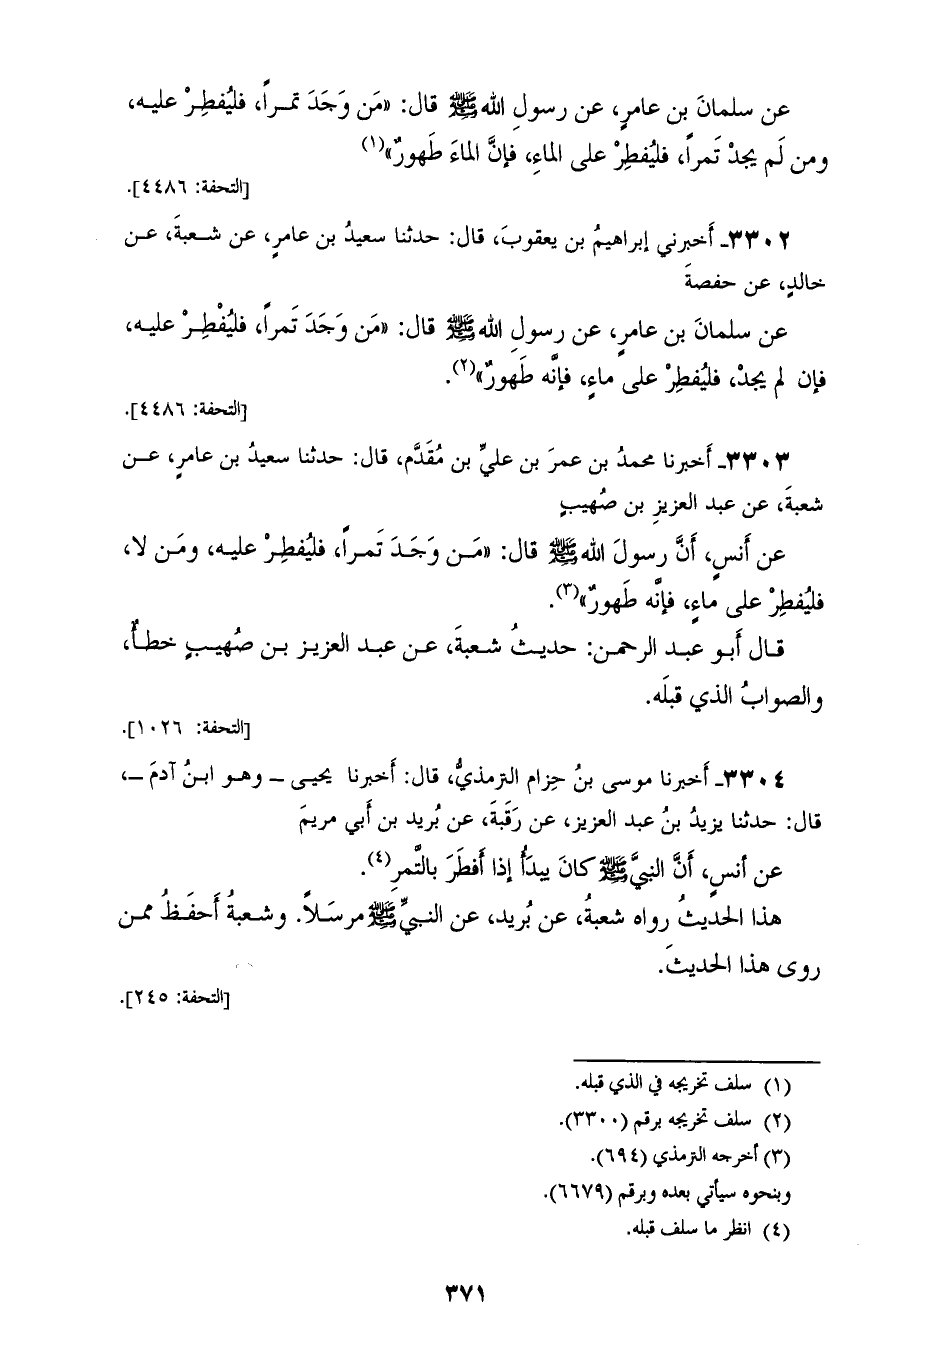 عن سلمانَ بن عامرٍ، عن رسولِ الله ﷺ قال: «مَن وَجَدَ تمراً، فليُفطِرْ عليه،
ومن لَم يجدْ تَمراً، فليُفطِرْ على الماءِ، فإنَّ الماءَ طَهورٌ»(١)
[التحفة: ٤٤٨٦].
٣٣٠٢ـ أَخبرني إبراهيمُ بن يعقوبَ، قال: حدثنا سعيدُ بن عامرٍ، عن شعبةَ، عن
خالدٍ، عن حفصةَ
عن سلمانَ بن عامرٍ، عن رسولِ الله ﷺ قال: «مَن وَجَدَ تَمراً، فليُفْطِرْ عليه،
فإن لم يجدْ، فليُفطِرْ على ماءٍ، فإنَّه طَهورٌ»(٢).
[التحفة: ٤٤٨٦].
٣٣٠٣ـ أَخبرنا محمدُ بن عمرَ بن عليِّ بن مُقَدَّم، قال: حدثنا سعيدُ بن عامرٍ، عن
شعبةَ، عن عبد العزيزِ بن صُهيبٍ
عن أَنسٍ، أَنَّ رسولَ الله ﷺ قال: «مَن وَجَدَ تَمراً، فليُفطِرْ عليه، ومَن لا،
فليُفطِرْ على ماءٍ، فإنَّه طَهورٌ»(٣).
قال أَبو عبد الرحمن: حديثُ شعبةَ، عن عبد العزيز بن صُهيبٍ خطأٌ،
والصوابُ الذي قبلَه.
[التحفة: ١٠٢٦].
٣٣٠٤ـ أَخبرنا موسى بنُ حِزام الترمذيُّ، قال: أَخبرنا يحيى – وهو ابنُ آدمَ –،
قال: حدثنا يزيدُ بنُ عبد العزيز، عن رَقَبةَ، عن بُريد بن أَبي مريمَ
عن أنسٍ، أَنَّ النبيَّ ﷺ كانَ يبدَأُ إذا أَفطَرَ بالتَّمرِ(٤).
هذا الحديثُ رواه شعبةُ، عن بُريد، عن النبيِّ ﷺ مرسَلاً. وشعبةُ أَحفَظُ ممن
روى هذا الحديثَ.
[التحفة: ٢٤٥].
(١) سلف تخريجه في الذي قبله.
(٢) سلف تخريجه برقم (٣٣٠٠).
(٣) أخرجه الترمذي (٦٩٤).
وبنحوه سيأتي بعده وبرقم (٦٦٧٩).
(٤) انظر ما سلف قبله.
٣٧١